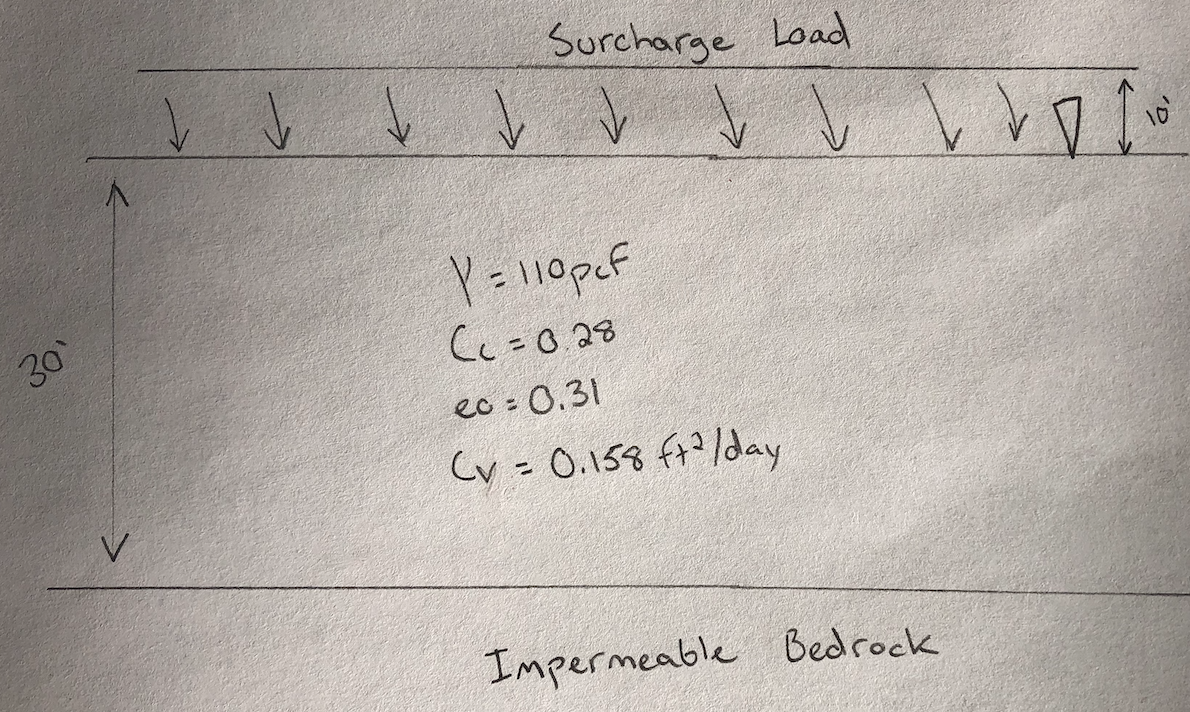 Surcharge Load
10'
γ = 110pcf
Cc = 0.28
30'
eo = 0.31
Cv = 0.158 ft²/day
Impermeable Bedrock